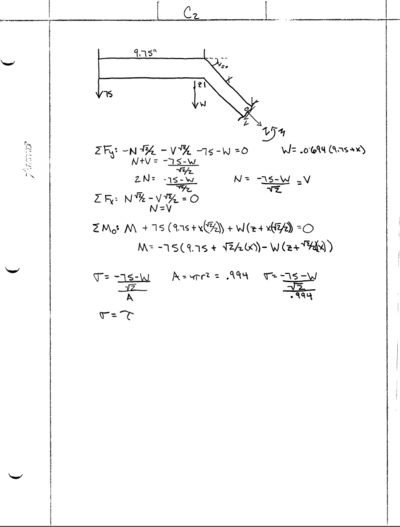 C2
9.75"
45°
x
75
z
W
V
N
M
ΣFy: -N √2/2 - V √2/2 - 75 - W = 0 W = .0694 (9.75 + x)
N + V = -75-W / √2/2
2N = -75-W / √2/2 N = -75-W / √2 = V
ΣFx: N √2/2 - V √2/2 = 0
N = V
ΣMo: M + 75 (9.75 + x(√2/2)) + W(z + x(√2/2)) = 0
M = -75 (9.75 + √2/2 (x)) - W(z + √2/2(x))
σ = -75-W / √2 / A A = πr² = .994 σ = -75-W / √2 / .994
σ = τ